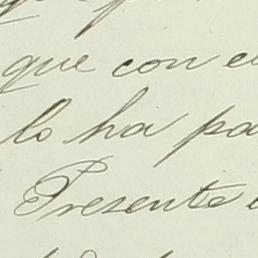 que con e
lo ha pa
Presente